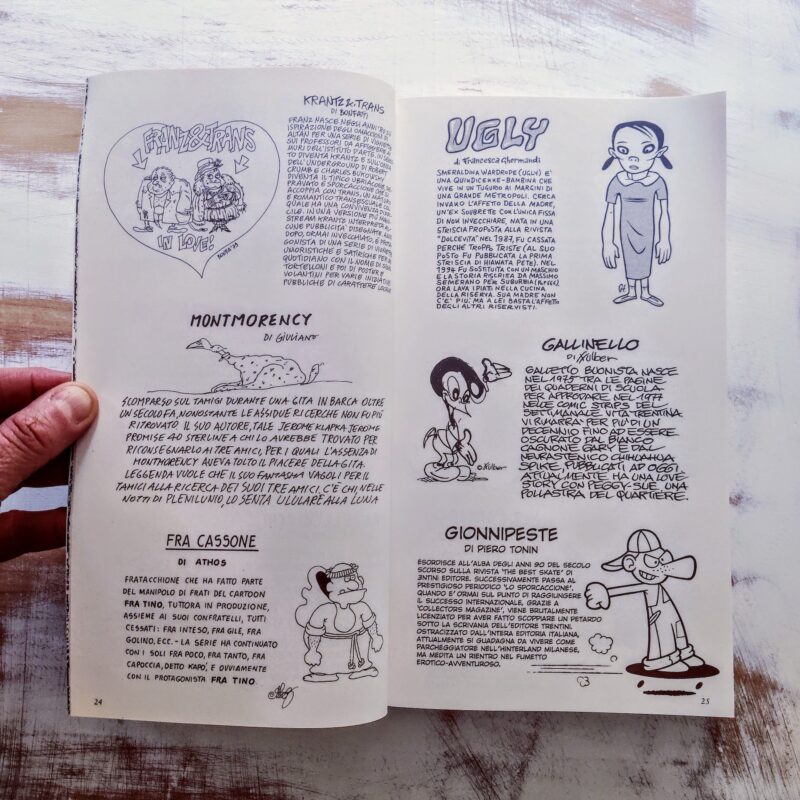 FRANZ&TRANS
IN LOVE!
KRANTZ & TRANS
DI BONFATTI
FRANZ NASCE NEGLI ANNI '80 SU
ISPIRAZIONE DEGLI OMACCIONI DI
ALTAN PER UNA SERIE DI VIGNETTE
SUI PROFESSORI DA APPENDERE AI
MURI DELL'ISTITUTO D'ARTE. IN
DIVENTA KRANTZ E SULL'
DELL'UNDERGROUND DI ROBERT
CRUMB E CHARLES BUKOWSKI
DIVENTA IL TIPICO UBRIACONE DE-
PRAVATO E SPORCACCIONE CHE SI
ACCOPPIA CON TRANS, UN
E ROMANTICO TRANSESSUALE COL
QUALE HA UNA CONVIVENZA DIFFI-
CILE. IN UNA VERSIONE PIÙ MAIN-
STREAM KRANTZ INTERPRETA AL-
CUNE PUBBLICITÀ DISEGNATE. ANNI
DOPO, ORMAI INVECCHIATO, È PROTA-
GONISTA DI UNA SERIE DI VIGNETTE
UMORISTICHE E SATIRICHE PER UN
QUOTIDIANO CON IL NOME DI SIGNOR
TORTELLONI E POI DI POSTER E
VOLANTINI PER VARIE INIZIATIVE
PUBBLICHE DI CARATTERE LOCALE
MONTMORENCY
DI GIULIANO
SCOMPARSO SUL TAMIGI DURANTE UNA GITA IN BARCA OLTRE
UN SECOLO FA, NONOSTANTE LE ASSIDUE RICERCHE NON FU PIÙ
RITROVATO. IL SUO AUTORE, TALE JEROME KLAPKA JEROME
PROMISE 40 STERLINE A CHI LO AVREBBE TROVATO PER
RICONSEGNARLO AI TRE AMICI, PER I QUALI L'ASSENZA DI
MONTMORENCY AVEVA TOLTO IL PIACERE DELLA GITA.
LEGGENDA VUOLE CHE IL SUO FANTASMA VAGOLI PER IL
TAMIGI ALLA RICERCA DEI SUOI TRE AMICI. C'È CHI, NELLE
NOTTI DI PLENILUNIO, LO SENTA ULULARE ALLA LUNA
FRA CASSONE
DI ATHOS
FRATACCHIONE CHE HA FATTO PARTE
DEL MANIPOLO DI FRATI DEL CARTOON
FRA TINO, TUTTORA IN PRODUZIONE,
ASSIEME AI SUOI CONFRATELLI, TUTTI
CESSATI: FRA INTESO, FRA GILÈ, FRA
GOLINO, ECC. - LA SERIE HA CONTINUATO
CON I SOLI FRA POCO, FRA TANTO, FRA
CAPOCCIA, DETTO KAPÒ, E OVVIAMENTE
CON IL PROTAGONISTA FRA TINO.
24
UGLY
di Francesca Ghermandi
SMERALDINA WARDROPE (UGLY) E'
UNA QUINDICENNE-BAMBINA CHE
VIVE IN UN TUGURIO AI MARGINI DI
UNA GRANDE METROPOLI. CERCA
INVANO L'AFFETTO DELLA MADRE,
UN'EX SOUBRETTE CON L'UNICA FISSA
DI NON INVECCHIARE. NATA IN UNA
STRISCIA PROPOSTA ALLA RIVISTA
"DOLCEVITA" NEL 1987, FU CASSATA
PERCHE TROPPO TRISTE (AL SUO
POSTO FU PUBBLICATA LA PRIMA
STRISCIA DI HIAWATA PETE). NEL
1996 FU SOSTITUITA CON UN MASCHIO
E LA STORIA RISCRITTA DA MASSIMO
SEMERANO PER SUBURBIA
ORA LAVA I PIATI NELLA CUCINA
DELLA RISERVA. SUA MADRE NON
C'E' PIU', MA A LEI BASTA L'AFFETTO
DEGLI ALTRI RISERVISTI.
GALLINELLO
DI Fulber
GALLETTO BUONISTA NASCE
NEL 1975 TRA LE PAGINE
DEI QUADERNI DI SCUOLA
PER APPRODARE NEL 1977
NELLE COMIC STRIPS DEL
SETTIMANALE VITA TRENTINA.
VI RIMARRA' PER PIU' DI UN
DECENNIO FINO AD ESSERE
OSCURATO DAL BIANCO
CAGNONE GARY E DAL
NEVRASTENICO CHIHUAHUA
SPIKE, PUBBLICATI AD OGGI.
ATTUALMENTE HA UNA LOVE-
STORY CON PEGGY-SUE, UNA
POLLASTRA DEL QUARTIERE.
© Fulber
GIONNIPESTE
DI PIERO TONIN
ESORDISCE ALL'ALBA DEGLI ANNI 90 DEL SECOLO
SCORSO SULLA RIVISTA "THE BEST SKATE" DI
3NTINI EDITORE. SUCCESSIVAMENTE PASSA AL
PRESTIGIOSO PERIODICO "LO SPORCACCIONE".
QUANDO E' ORMAI SUL PUNTO DI RAGGIUNGERE
IL SUCCESSO INTERNAZIONALE, GRAZIE A
"COLLECTORS MAGAZINE", VIENE BRUTALMENTE
LICENZIATO PER AVER FATTO SCOPPIARE UN PETARDO
SOTTO LA SCRIVANIA DELL'EDITORE TRENTINI.
OSTRACIZZATO DALL'INTERA EDITORIA ITALIANA,
ATTUALMENTE SI GUADAGNA DA VIVERE COME
PARCHEGGIATORE NELL'HINTERLAND MILANESE,
MA MEDITA UN RIENTRO NEL FUMETTO
EROTICO-AVVENTUROSO.
25